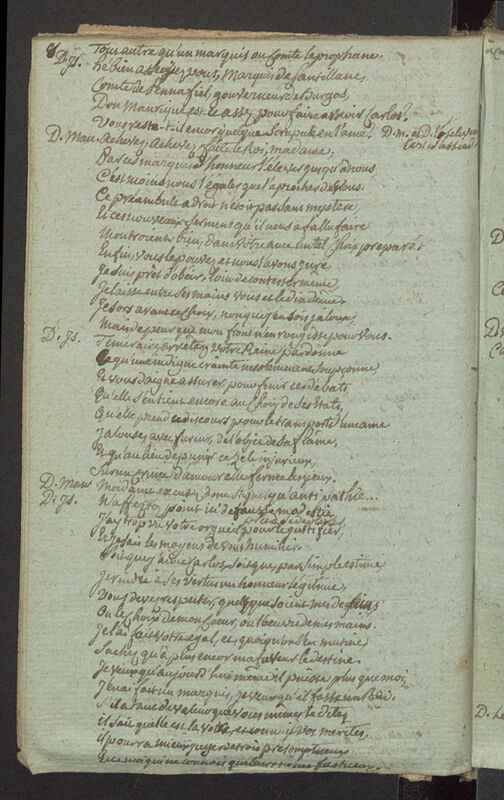 8 Tout autre qu'un marquis ou Comte le prophane.
D. Is. hé bien asseyez vous, Marquis de Santillane,
Comte de Pennafiel, gouverneur de Burgos,
Don manrique, est-ce assez pour faire asseoir Carlos?
Vous reste-t-il encor quelque Scrupule en l'ame? D. m. et D. Lope se lévent
D. Man. achevez, achevez, faites le Roi, madame;
Par ces marques d'honneur l'élever jusqu'à nous
C'est moins nous l'égaler que l'aprocher de Vous.
Ce préambule adroit n'étoit pas sans mystere,
Et ces nouveaux sermens qu'il nous a fallu faire
Montroient bien dans votre ame un tel choix préparé.
Enfin, vous le pouvez, et nous l'avons juré
Je suis prêt d'obéir, loin de contester même
Je laisse entre ses mains vous et le diadême
Je sors avant ce choix, non que j'en sois jaloux,
Mais de peur que mon front n'en rougisse pour Vous.
D. Is. Temeraire, arrêtez, votre Reine pardonne
Ce qu'une indigne crainte insolemment soupçonne
Et vous daigne assurer, pour finir ces débats,
Qu'elle s'en tient encore au Choix de ses Etats,
Qu'elle prend ce discours pour le transport d'un ame
Jalouse, avec fureur, de l'objet de sa flâme,
Et qu'au lieu de punir ce zele injurieux,
Sur un crime d'amour elle ferme les yeux.
D. Man. Madame, excusez, donc si quelqu'antipathie...
D. Is. N'affectez point ici de fausse modestie
J'ay trop vu votre orgueil pour le justifier,
Et je sais les moyens de vous humilier.
Soit que j'aime Carlos, soit que, par simple estime
Je rende à ses vertus un honneur légitime,
Vous devez respecter, quelque soient mes desseins
Ou le choix de mon coeur, ou l'oeuvre de mes mains.
Je l'ai fait votre égal, et quoiqu'on s'en mutine
Sachez qu'à plus encor ma faveur le destine.
Je veux qu'aujourd'hui même il puisse plus que moi,
J'en ai fait un marquis, je veux qu'il fasse un Roi.
S'il a tant de valeur que vous même le dites
il sait quelle est la votre, et connoit vos merites,
il pourra mieux juger de trois
Et